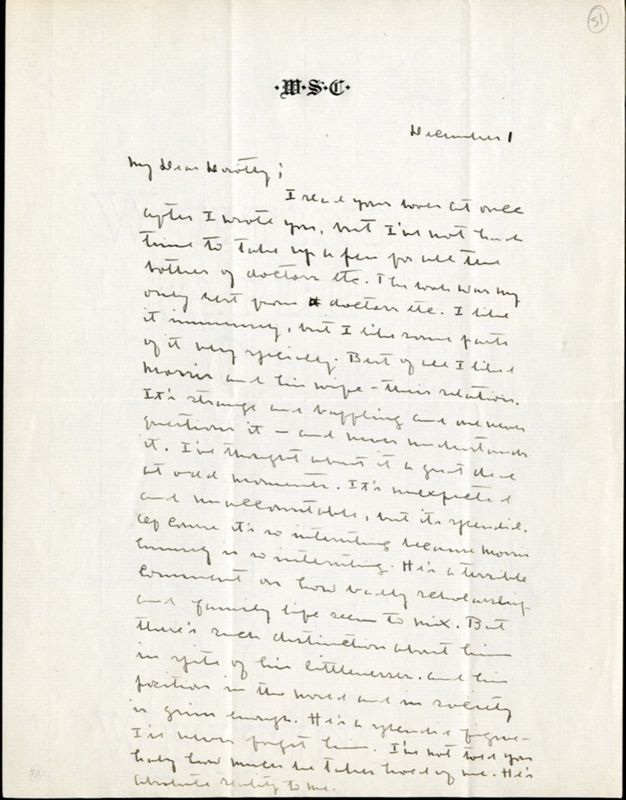 51
·W·S·C·
December 1
My Dear Dorothy;
I read your book at once
after I wrote you, but I've not had
time to take up a pen for all the
bother of doctors etc. The book was my
only rest from doctors etc. I like
it immensely, but I like some parts
of it very specially. Best of all I liked
Morris and his wife – their relation.
It's strange and baffling and one never
questions it – and never understands
it. I've thought about it a great deal
at odd moments. It's unexpected
and unaccountable, but its splendid.
Of course it's so interesting because Morris
himself is so interesting. He's a terrible
comment on how badly scholarship
and family life seem to mix. But
there's such distinction about him
in spite of his littlenesses. and his
position in the world and in society
is grim enough. He's a splendid figure –
I'll never forget him. I've not told you
half how much he takes hold of me. He's
absolute reality to me.